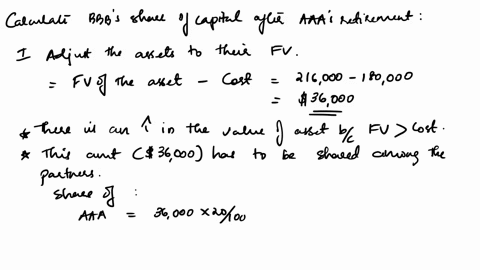 Calculate BBB's share of capital after AAA's retirement :
I Adjust the assets to their FV.
= FV of the asset - Cost = 216,000 - 180,000
= $36,000
* There is an ↑ in the value of asset b/c FV > Cost.
* This amt ($36,000) has to be shared among the
partners.
Share of :
AAA = 36,000 × 20/100